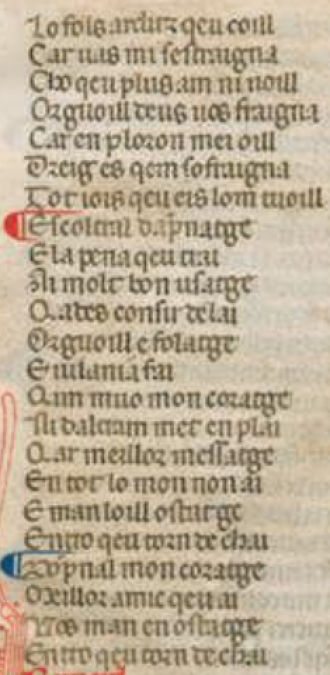 Lo fols arditz qeu coill
Car uas mi sestraigna
Cho qeu plus am ni uoill
Orguoill deus uos fraigna
Car en ploron mei oill
Dreig es qem sofraigna
Tot iois qeu eis lom tuoill
El col mal dap̃natge
E la pena qeu trai
Ai molt bon usatge
Q.ades consir delai
Orguoill e folatge
E uilania fai
Q.im muo mon coratge
Ni daltram met en plai
Q.ar meillor messatge
En tot lo mon non ai
E man loill ostatge
Entro qeu torn de chai
Dõpnal mon coratge
Meillor amic qeu ai
Vos man en ostatge
Entro qeu torn de chai